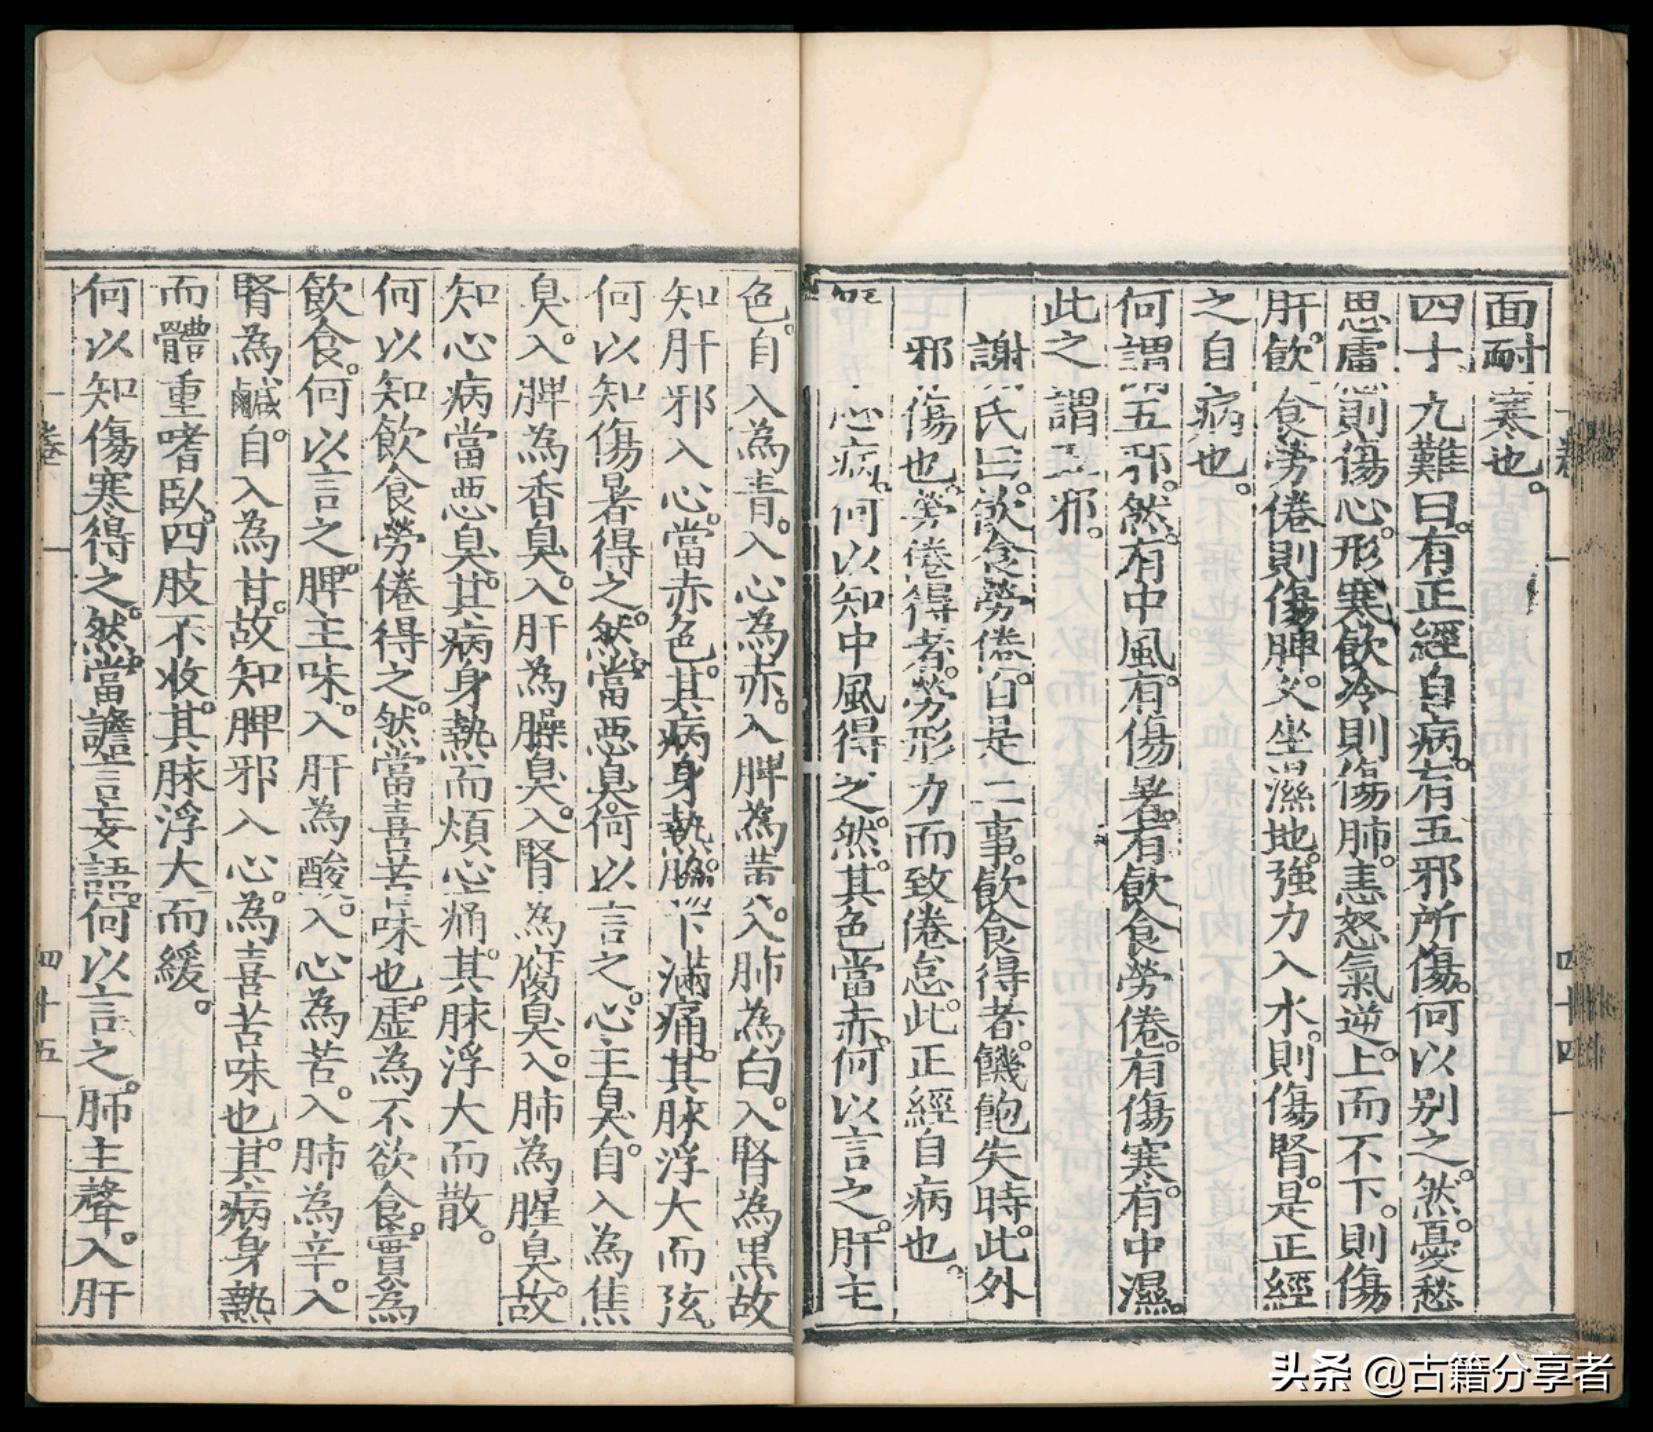 面耐寒也。
四十九難曰。有正經自病。有五邪所傷。何以別之。然。憂愁
思慮則傷心。形寒飲冷則傷肺。恚怒氣逆上而不下。則傷
肝。飲食勞倦則傷脾。久坐濕地。強力入水。則傷腎。是正經
之自病也。
何謂五邪。然。有中風。有傷暑。有飲食勞倦。有傷寒。有中濕。
此之謂五邪。
謝氏曰。飲食勞倦。自是二事。飲食得者。饑飽失時。此外
邪傷也。勞倦得者。勞形力而致倦怠。此正經自病也。
心病。何以知中風得之。然。其色當赤。何以言之。肝主
色。自入為青。入心為赤。入脾為黃。入肺為白。入腎為黑。故
知肝邪入心。當赤色。其病身熱。脇下滿痛。其脉浮大而弦。
何以知傷暑得之。然。當惡臭。何以言之。心主臭。自入為焦
臭。入脾為香臭。入肝為臊臭。入腎為腐臭。入肺為腥臭。故
知心病當惡臭。其病身熱而煩。心痛。其脉浮大而散。
何以知飲食勞倦得之。然。當喜苦味也。虛為不欲食。實為
飲食。何以言之。脾主味。入肝為酸。入心為苦。入肺為辛。入
腎為鹹。自入為甘。故知脾邪入心。為喜苦味也。其病身熱
而體重嗜臥。四肢不收。其脉浮大而緩。
何以知傷寒得之。然。當譫言妄語。何以言之。肺主聲。入肝
四十四
四十五
头条 @古籍分享者